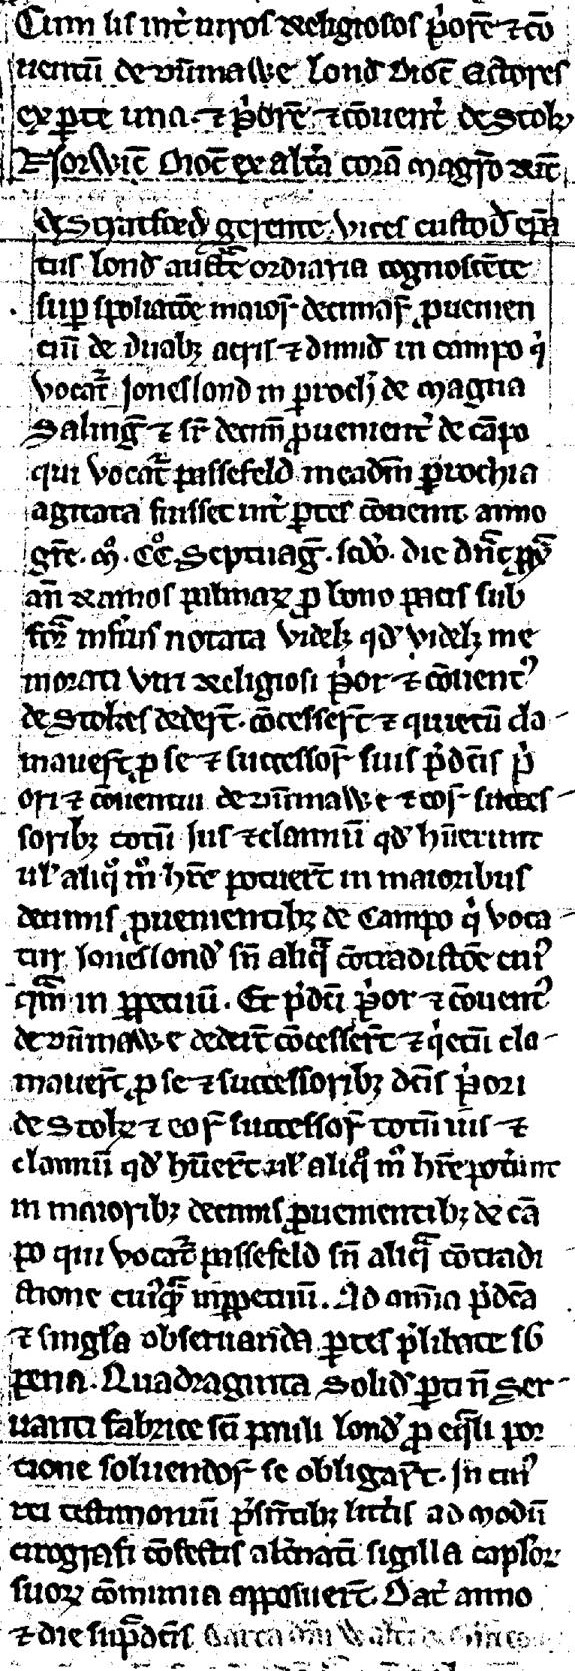 Cum lis int' uiros religiosos p'orē ⁊ cō
uentū de dūmawe lond dioc̄ actores
ex parte una. ⁊ p'orē ⁊ cōuent' de Stok
Norwic̄ dioc̄ ex alt'a corā magr̄o ric̄
de Stratford gerente vices custod' ep̄a
tus lond auct̄e ordiaria cognoscēte
sup spoliatōe maior' decimar' puenien
ciū de duab; acris ⁊ dimid in campo q'
vocat' Joneslond in proch' de magna
Saling' ⁊ sr̄ decim̄ puenient' de cāpo
qui vocat' passefeld in eadm̄ parochia
agitata fuisset int' partes cōuenit. anno
gr̄e. m̊. CC̊ Septuag'. sc̄do. die dn̄ic
an̄ ramos palmaꝝ p bono pacis sub
for̄ inf'ius notata videlꝫ qd' videlꝫ me
morati viri religiosi p'or ⁊ cōuent'
de Stokes deder̄t. cōcesser̄t ⁊ quietū cla-
mauer̄t, p se ⁊ successor' suis p'dc̄is p'
ori ⁊ cōuentui de dūmawe ⁊ eor' succes-
sorib; totū ius ⁊ clamiū qd' hūerunt
ul' aliq̊ m̊ hr̄e potuer̄t in maioribus
decimis, puenientib; de Campo q' voca-
tur Joneslond' sn̄ aliq̄ cōtradictōe cui'
q̄m in ppetuū. Et p'dc̄i p'or ⁊ cōuent'
de dūmawe deder̄t cōcesser̄t ⁊ q'etū cla-
mauer̄t, p se ⁊ successorib; dc̄is p'ori
de Stok ⁊ eor' successor' totū ius ⁊
clamiū qd' hūer̄t ul' aliq̊ m̊ hr̄e pot'unt
in maiorib; decimis puenientib; de cā
po qui vocat' passefeld sn̄ aliq̄ cōtradi
ctione cui'q̄ inppetuū. Ad om̄ia p'dc̄a
⁊ singl'a obseruanda partes p'libate sb
pena. Quadraginta Solid' parti n̄ Ser-
uanti fabrice sc̄i pauli lond' p eq̄li por
tione soluendor' se obligar̄t. In cui'
rei testimoniū p'sentib; litt'is ad modū
cirografi cōfectis alt'nati sigilla capl'or
suoꝝ cōmunia apposuer̄t. Dat' anno
⁊ die sup̄dc̄is Carta dn̄i Walt'i